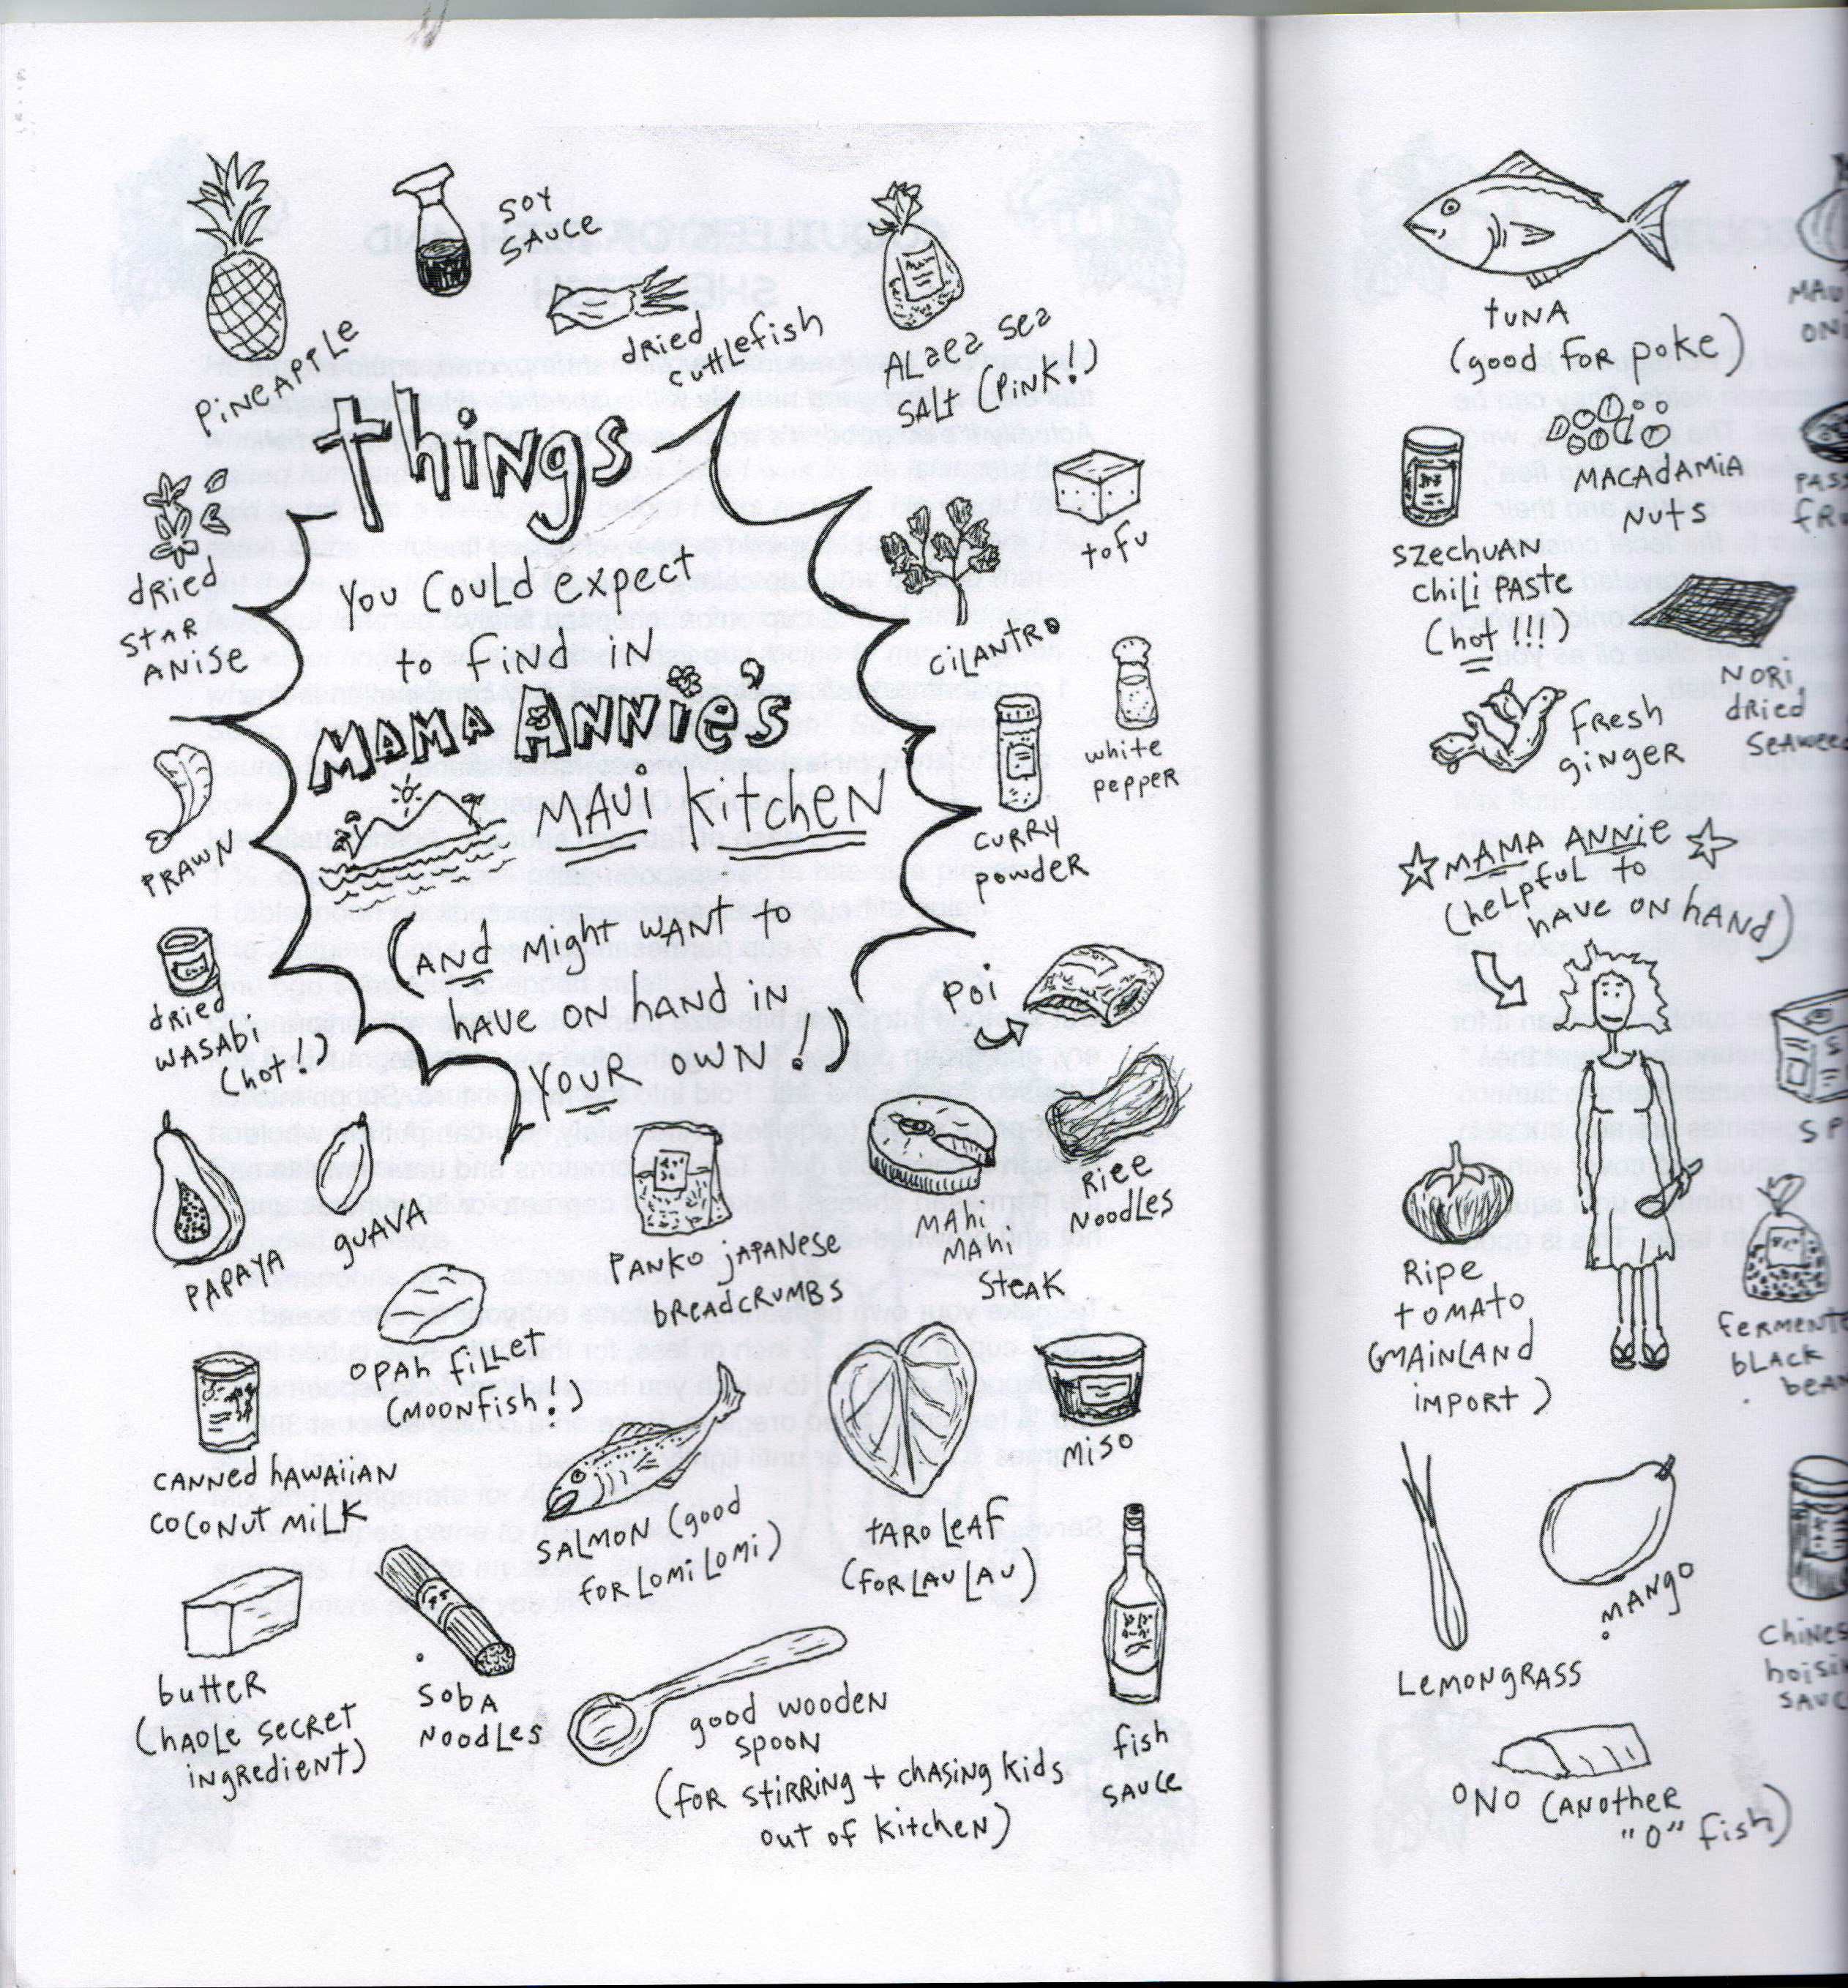 PINEAPPLE
SOY
SAUCE
dRiEd
cuttlefish
ALaea sea
SALt (PiNK!)
things
YOU COULd expect
to find iN
MAMA ANNiE'S
MAUi KitCHEN
(ANd Might WANT to
HAVE ON hANd iN
YOUR OWN!)
tofu
CiLANTRO
white
pepper
CURRY
powdER
dRiEd
StAR
ANiSE
PRAWN
dRiEd
WASAbi
(hot!)
POi
RiCE
NoodLES
MAhi
MAhi
StEAK
PANKO jAPANESE
bREAdCRUMBS
PAPAYA
gUAVA
OPAH fiLLET
(MOONfish!)
CANNEd hAWAiiAN
COCONUt MiLK
SALMON (good
FOR LOMi LOMi)
tARO LEAF
(FOR LAU LAU)
MiSO
buttER
(hAOLE SECRET
iNgREdiENT)
SObA
NOOdLES
good woodEN
SPOON
(FOR StiRRiNg + ChASiNg Kids
out of KitchEN)
fish
SAUCE
tUNA
(good FOR POKE)
MACAdAMiA
NUtS
SZEChUAN
ChiLi PASTE
(hot!!!)
NORi
dRiEd
FRESh
giNgER
MAMA ANNiE
(hELPfUL to
hAVE ON hANd)
RiPE
tOMAtO
(MAiNLANd
iMPORT)
bLACK
LEMONgRASS
MANgO
SAUC
ONO (ANOthER
"O" fish)